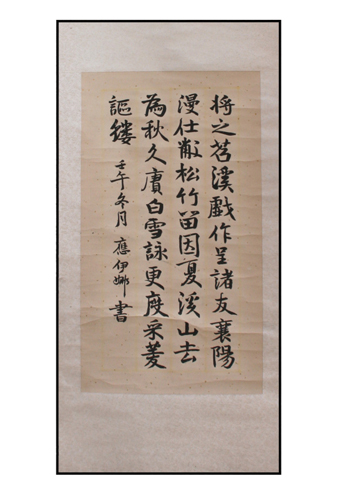 將之苕溪戲作呈諸友襄陽
漫仕黻松竹留因夏溪山去
為秋久賡白雪詠更度采菱
謳縷
壬午冬月 應伊娜 書